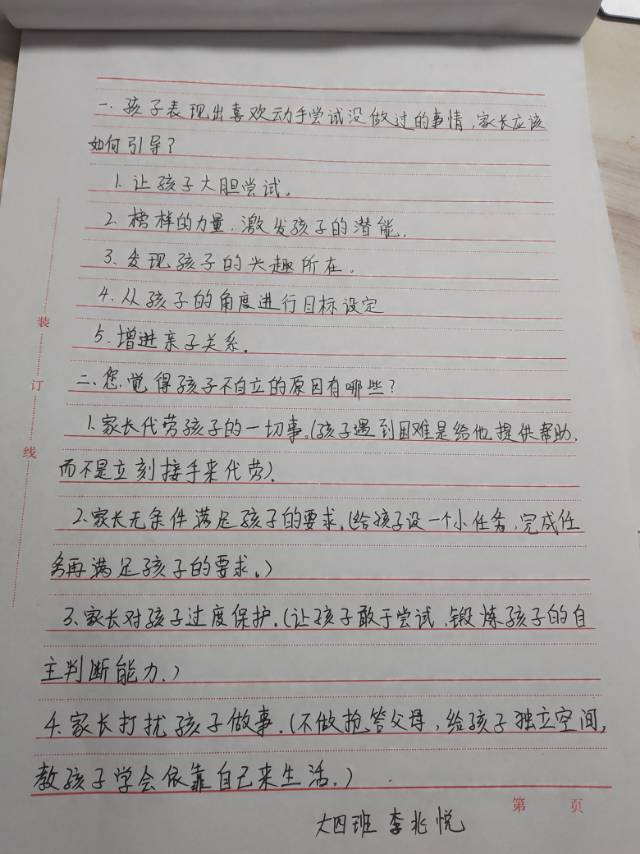 一.孩子表现出喜欢动手尝试没做过的事情,家长应该
如何引导?
1.让孩子大胆尝试.
2.榜样的力量.激发孩子的潜能.
3.发现孩子的兴趣所在.
4.从孩子的角度进行目标设定
5.增进亲子关系.
二.您觉得孩子不自立的原因有哪些?
1.家长代劳孩子的一切事.(孩子遇到困难是给他提供帮助.
而不是立刻接手来代劳).
2.家长无条件满足孩子的要求.(给孩子设一个小任务,完成任
务再满足孩子的要求.)
3.家长对孩子过度保护.(让孩子敢于尝试.锻炼孩子的自
主判断能力.)
4.家长打扰孩子做事.(不做抢答父母,给孩子独立空间,
教孩子学会依靠自己来生活.)
装
订
线
第 页
大四班 李兆悦